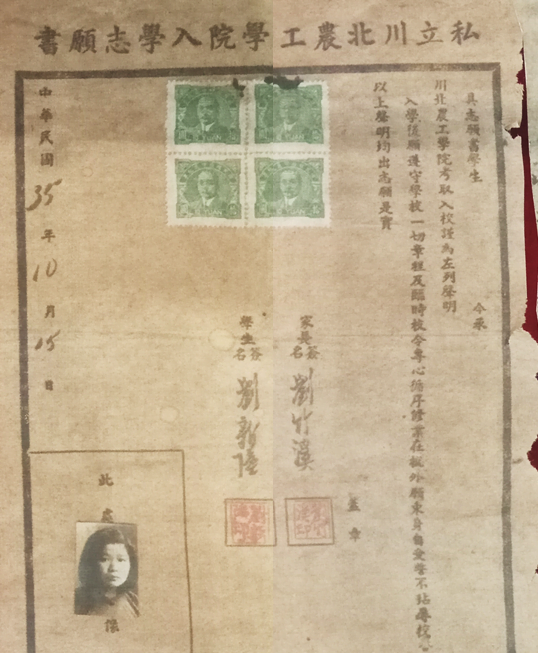 私立川北農工學院入學志願書
具志願書學生 今承
川北農工學院考取入校謹為左列聲明
入學後願遵守學校一切章程及臨時校令專心循序修業在校外願束身自愛誓不玷辱校
以上聲明均出志願是實
家長簽名 劉竹溪 蓋章
學生簽名 劉
中華民國35年10月15日
此處
像